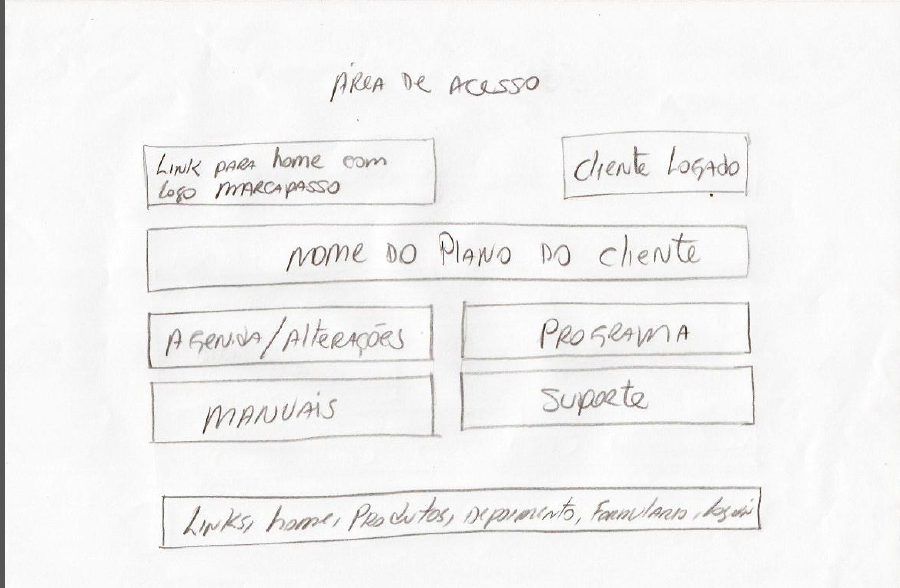 ÁREA DE ACESSO
LINK PARA home com
Logo MARCAPASSO
Cliente LOGADO
NOME DO PLANO DO cliente
AGENDA/Alterações
PROGRAMA
MANUAIS
Suporte
LINKS, home, Produtos, Depoimento, Formulario, Login